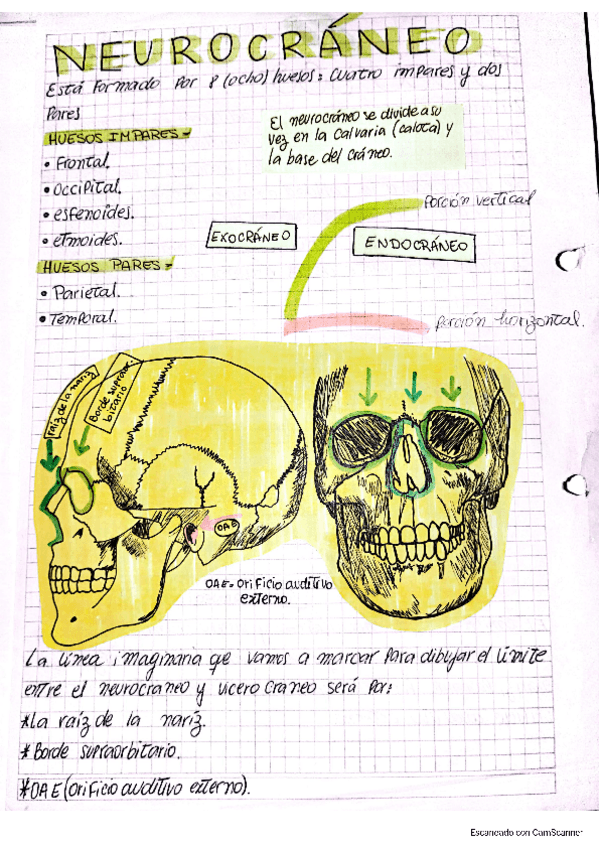 NEUROCRÁNEO
Está Formado Por 8 (ocho) huesos: Cuatro impares y dos
Pares
El neurocráneo se divide a su
vez en la Calvaria (calota) y
la base del cráneo.
HUESOS IMPARES=
• Frontal.
• Occipital.
• esfenoides.
• etmoides.
HUESOS PARES=
• Parietal.
• Temporal.
Porción vertical
EXOCRÁNEO
ENDOCRÁNEO
Porción horizontal.
raíz de la nariz
Borde supraor-
bitario
OAE
OAE= Orificio auditivo
externo.
La línea imaginaria que vamos a marcar para dibujar el límite
entre el neurocraneo y vicero craneo será por:
*La raíz de la naríz.
* Borde supraorbitario.
*OAE (orificio auditivo externo).
Escaneado con CamScanner